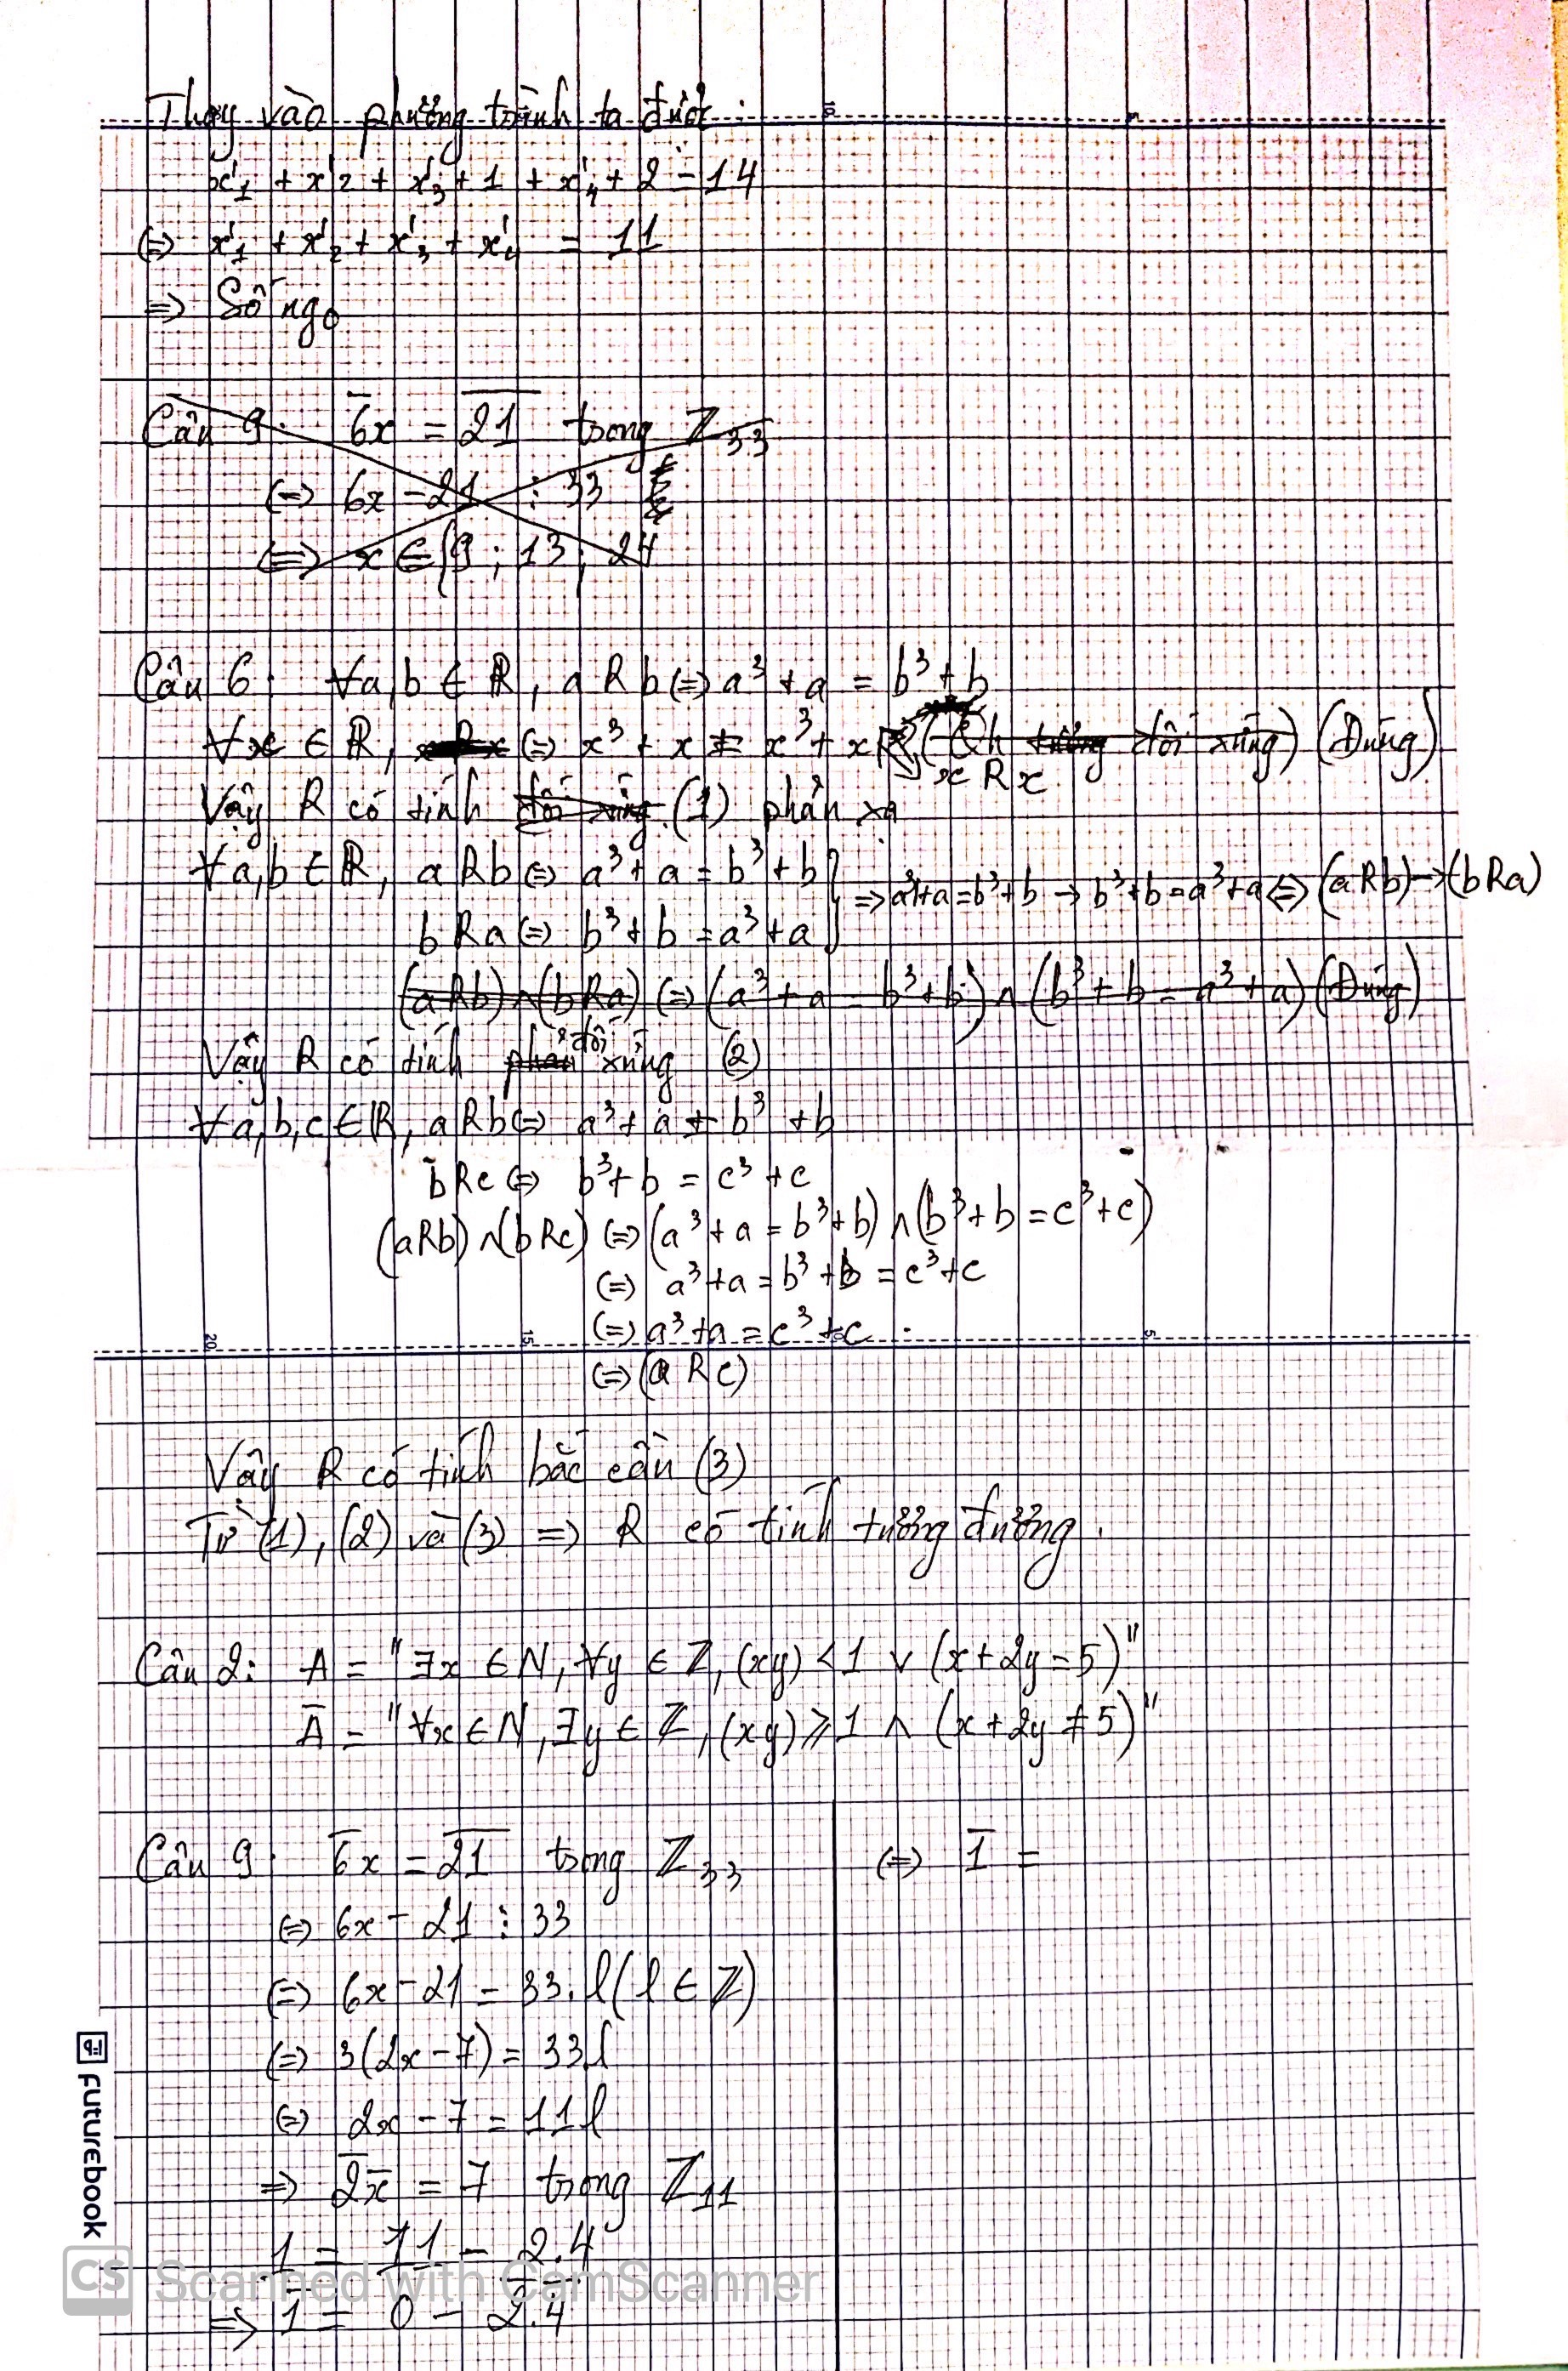 Thay vào phương trình ta được:
x'₁ + x'₂ + x'₃ + 1 + x'₄ + 2 = 14
(=) x'₁ + x'₂ + x'₃ + x'₄ = 11
=> Số ngo
Câu 9: 6̅x = 2̅1̅ trong ℤ₃₃
(=) 6x - 21 ⋮ 33
(=) x ∈ {9; 13; 24
Câu 6: ∀a,b ∈ ℝ, a R b (=) a³ + a = b³ + b
∀x ∈ ℝ, (=) x³ + x = x³ + x (Đúng)
x R x
Vậy R có tính đối xứng (1) phản xạ
∀a,b ∈ ℝ, a R b (=) a³ + a = b³ + b
b R a (=) b³ + b = a³ + a } => a³+a = b³+b → b³+b = a³+a (=) (aRb) → (bRa)
(aRb) ∧ (bRa) (=) (a³ + a = b³ + b) ∧ (b³ + b = a³ + a) (Đúng)
Vậy R có tính phản đối xứng (2)
∀a,b,c ∈ ℝ, a R b (=) a³ + a = b³ + b
b R c (=) b³ + b = c³ + c
(aRb) ∧ (bRc) (=) (a³ + a = b³ + b) ∧ (b³ + b = c³ + c)
(=) a³ + a = b³ + b = c³ + c
(=) a³ + a = c³ + c.
(=) (a R c)
Vậy R có tính bắc cầu (3)
Từ (1), (2) và (3) => R có tính tương đương.
Câu 2: A = "∃x ∈ N, ∀y ∈ ℤ, (xy) < 1 ∨ (x + 2y = 5)"
A̅ = "∀x ∈ N, ∃y ∈ ℤ, (xy) ⩾ 1 ∧ (x + 2y ≠ 5)"
Câu 9: 6̅x = 2̅1̅ trong ℤ₃₃
(=) 6x - 21 ⋮ 33
(=) 6x - 21 = 33.l (l ∈ ℤ)
(=) 3(2x - 7) = 33.l
(=) 2x - 7 = 11l
=> 2̅x̅ = 7 trong ℤ₁₁
1 = 11 - 2.4
=> 1 = 0 - 2.4
(=) 1̅ =
futurebook
CS Scanned with CamScanner